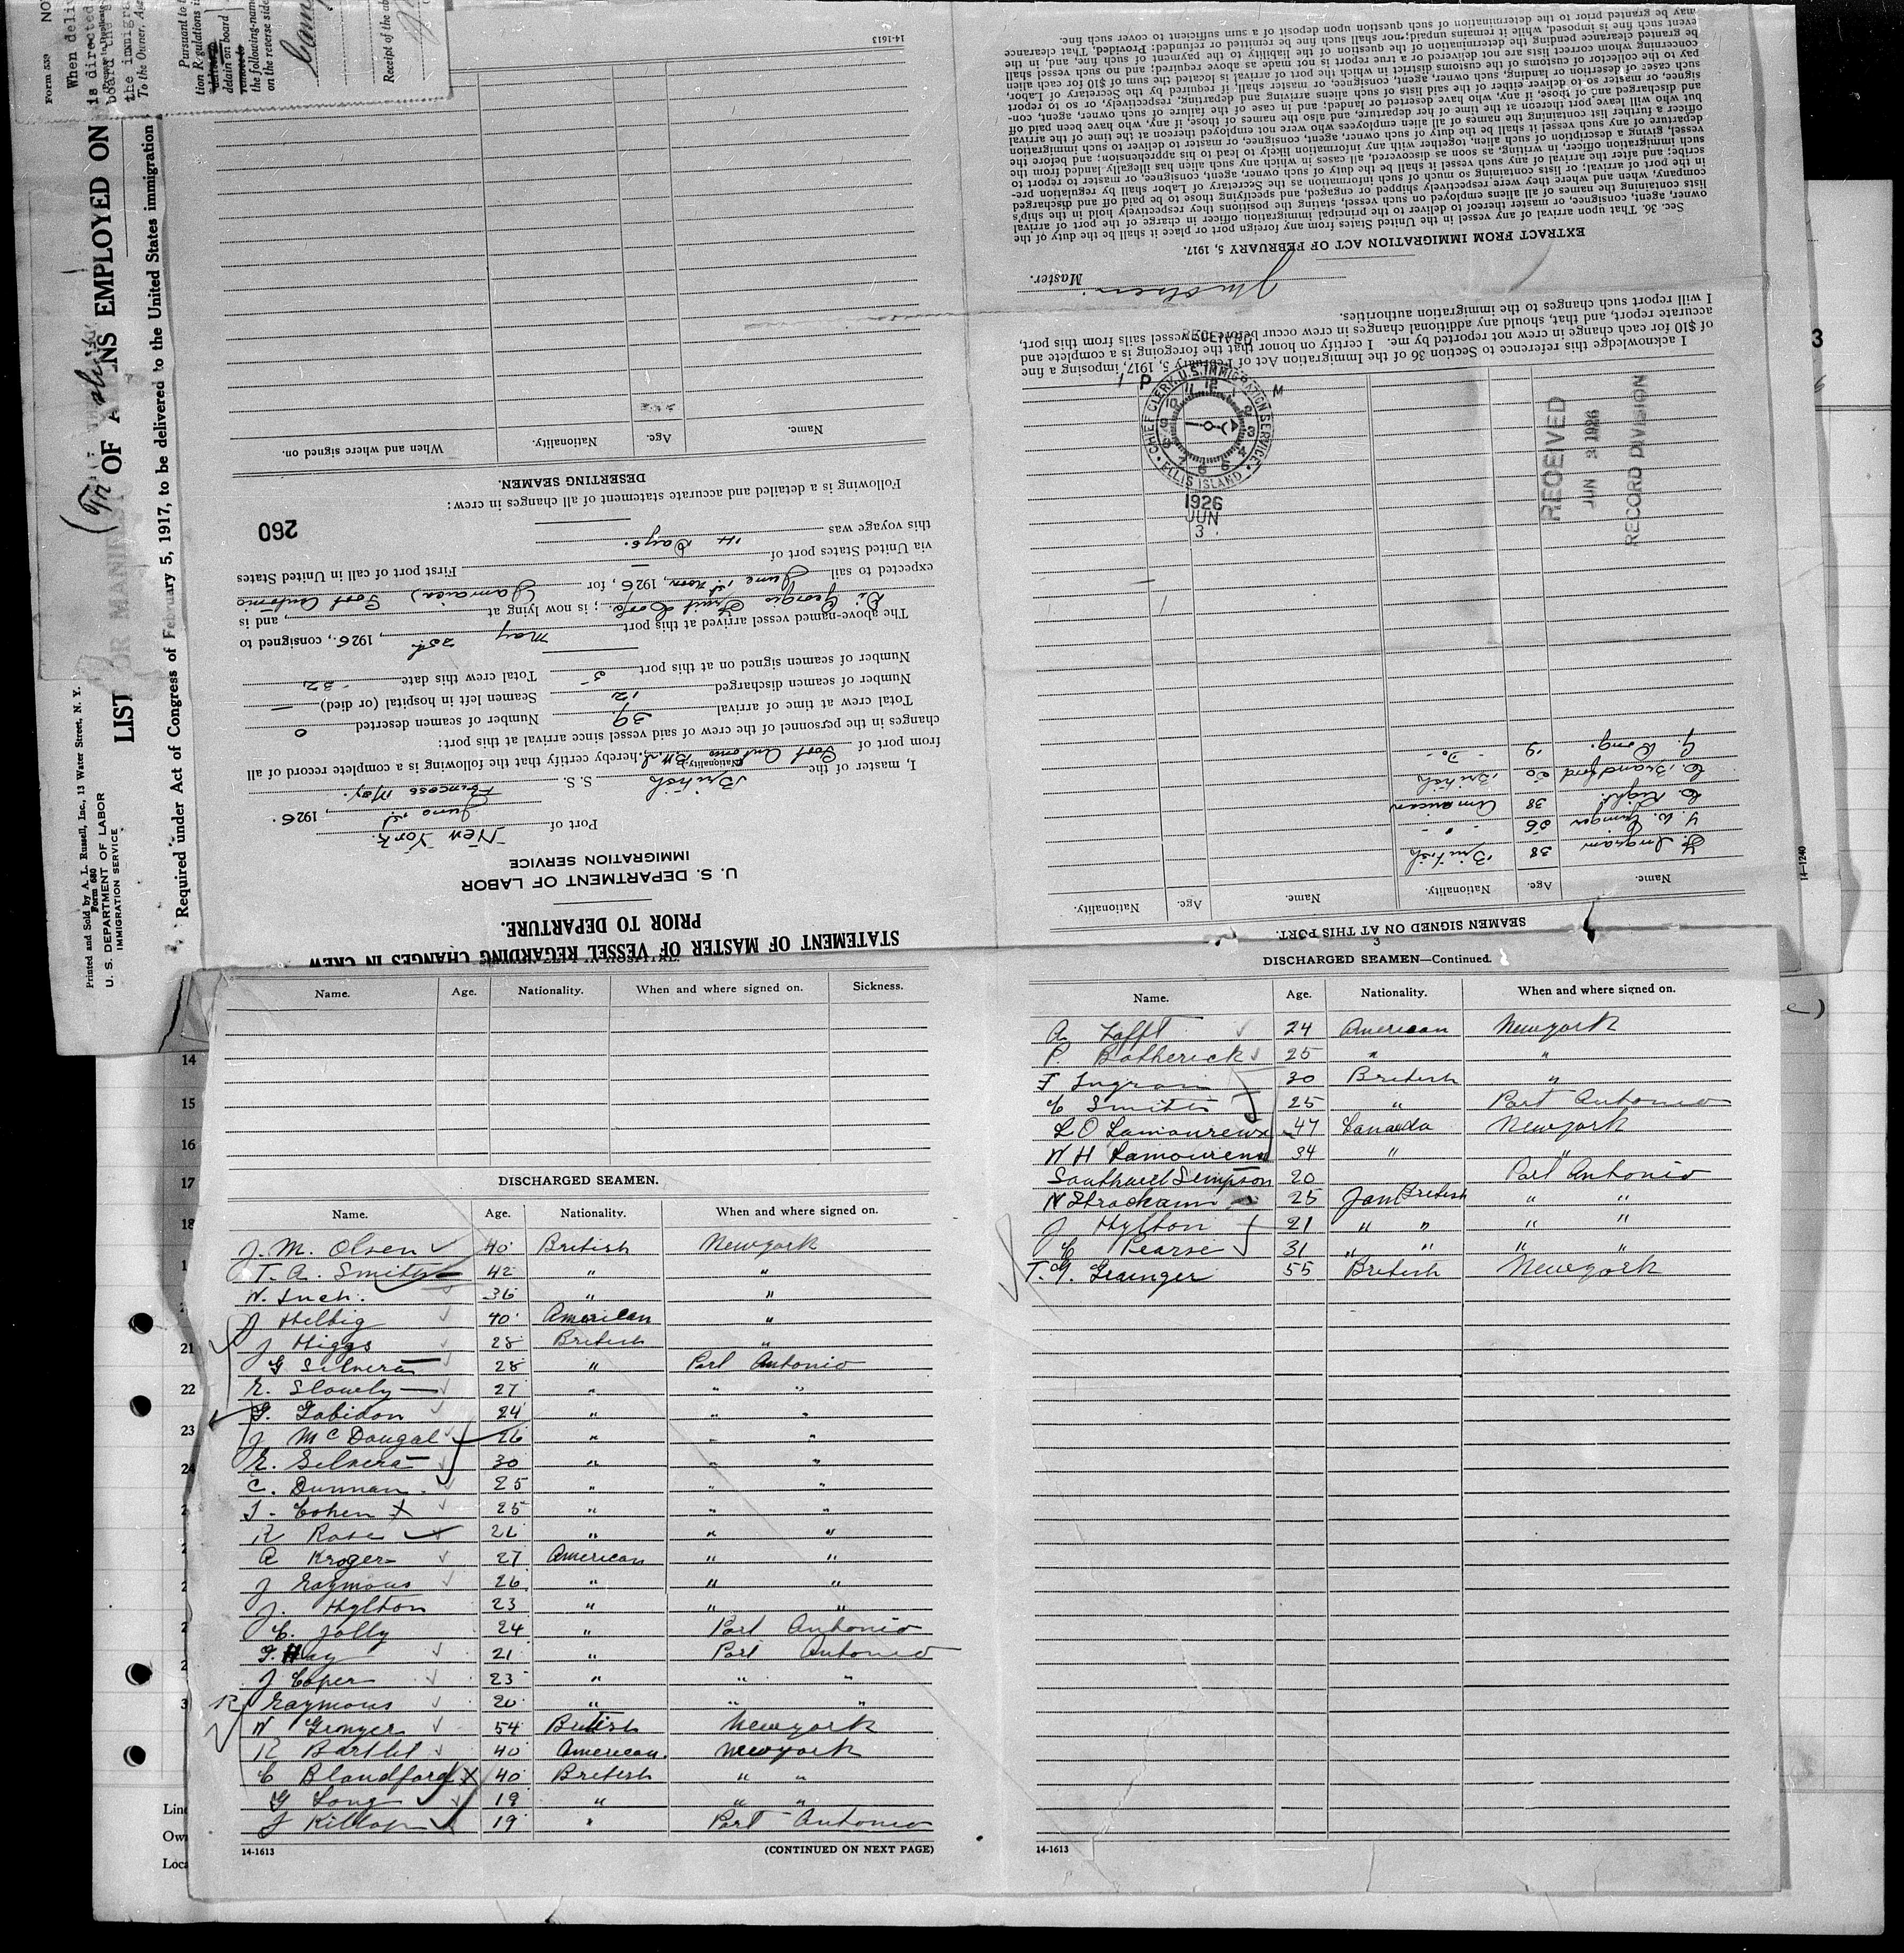 Form 539
NO
When deli
is directed
board the s
the immigra
To the Owner, Ag
Pursuant to t
tion Regulations i
detain on board
the following-name
on the reverse side
Receipt of the ab
Printed and Sold by A. L. Russell, Inc., 13 Water Street, N. Y.
Form 680
U. S. DEPARTMENT OF LABOR
IMMIGRATION SERVICE
LIST OR MANIFEST OF ALIENS EMPLOYED ON
Required under Act of Congress of February 5, 1917, to be delivered to the United States immigration
STATEMENT OF MASTER OF VESSEL REGARDING CHANGES IN CREW
PRIOR TO DEPARTURE.
U. S. DEPARTMENT OF LABOR
IMMIGRATION SERVICE
Port of New York.
June 1st, 1926.
I, master of the British S. S. Princess May.
(Nationality)
from port of Port Antonio B.W.I., hereby certify that the following is a complete record of all
changes in the personnel of the crew of said vessel since arrival at this port:
Total crew at time of arrival 39 Number of seamen deserted 0
Number of seamen discharged 12 Seamen left in hospital (or died) —
Number of seamen signed on at this port 5 Total crew this date 32
The above-named vessel arrived at this port May 25th, 1926, consigned to
Di Georgio Fruit Corp.; is now lying at, and is
expected to sail June 1st noon, 1926, for Port Antonio (Jamaica)
via United States port of — First port of call in United States
this voyage was 4 Days.
260
Following is a detailed and accurate statement of all changes in crew:
DESERTING SEAMEN.
Name. Age. Nationality. When and where signed on.
14-1613
SEAMEN SIGNED ON AT THIS PORT.
Name. Age. Nationality. Name. Age. Nationality.
F. Ingram 38 British
T. W. Grainger 56 " "
C. Right 38 American
C. Blandford 20 British
G. Long. 19 - Do -
I acknowledge this reference to Section 36 of the Immigration Act of February 5, 1917, imposing a fine
of $10 for each change in crew not reported by me. I certify on honor that the foregoing is a complete and
accurate report, and that, should any additional changes in crew occur before vessel sails from this port,
I will report such changes to the immigration authorities.
J M Olsen
Master.
EXTRACT FROM IMMIGRATION ACT OF FEBRUARY 5, 1917.
Sec. 36. That upon arrival of any vessel in the United States from any foreign port or place it shall be the duty of the
owner, agent, consignee, or master thereof to deliver to the principal immigration officer in charge of the port of arrival
lists containing the names of all aliens employed on such vessel, stating the positions they respectively hold in the ship's
company, when and where they were respectively shipped or engaged, and specifying those to be paid off and discharged
in the port of arrival; or lists containing so much of such information as the Secretary of Labor shall by regulation pre-
scribe; and after the arrival of any such vessel it shall be the duty of such owner, agent, consignee, or master to report to
such immigration officer, in writing, as soon as discovered, all cases in which any such alien has illegally landed from the
vessel, giving a description of such alien, together with any information likely to lead to his apprehension; and before the
departure of any such vessel it shall be the duty of such owner, agent, consignee, or master to deliver to such immigration
officer a further list containing the names of all alien employees who were not employed thereon at the time of the arrival
but who will leave port thereon at the time of her departure, and also the names of those, if any, who have been paid off
and discharged, and of those, if any, who have deserted or landed; and in case of the failure of such owner, agent, con-
signee, or master so to deliver either of the said lists of such aliens arriving and departing, respectively, or so to report
such cases of desertion or landing, such owner, agent, consignee, or master shall, if required by the Secretary of Labor,
pay to the collector of customs of the customs district in which the port of arrival is located the sum of $10 for each alien
concerning whom correct lists are not delivered or a true report is not made as above required; and no such vessel shall
be granted clearance pending the determination of the question of the liability to the payment of such fine, and, in the
event such fine is imposed, while it remains unpaid; nor shall such fine be remitted or refunded: Provided, That clearance
may be granted prior to the determination of such question upon deposit of a sum sufficient to cover such fine.
RECEIVED
CHIEF CLERK U.S. IMMIGRATION SERVICE
ELLIS ISLAND
1926
JUN
3
RECEIVED
JUN 3 1926
RECORD DIVISION
14-1240
3
14
15
16
17
18
21
22
23
24
Name. Age. Nationality. When and where signed on. Sickness.
DISCHARGED SEAMEN.
Name. Age. Nationality. When and where signed on.
J. M. Olsen 40 British Newyork
T. A. Smith 42 " "
W. Inch. 36 " "
J Helbig 40 American "
J Higgs 28 British "
G Silvera 28 " Port Antonio
E. Slowly 27 " " "
G. Gabidon 24 " " "
J McDougal 26 " " "
E. Silvera 30 " " "
C. Dunman 25 " " "
I. Cohen X 25 " " "
R Rose 26 " " "
A Kroger 27 American " "
J Raymous 26 " " "
J. Hylton 23 " " "
C. Jolly 24 " Port Antonio
F. Hay 21 " Port Antonio
J Coper 23 " " "
R Raymous 20 " " "
W Gronger 54 British Newyork
R Bartlet 40 American. Newyork
C Blandford X 40 British " "
G Long 19 " " "
J Killop 19 " Port Antonio
14-1613 (CONTINUED ON NEXT PAGE)
3
DISCHARGED SEAMEN—Continued.
Name. Age. Nationality. When and where signed on.
A Tafft 24 American Newyork
P. Botherick 25 " "
F Ingram 30 British "
C Smith 25 " Port Antonio
L O Lamoureux 47 Canada Newyork
W H Lamoureux 34 " "
Southwel Simpson 20 Port Antonio
N Strachann 25 Jam British " "
J Hylton 21 " " " "
C Pearse 31 " " " "
T. G. Grainger 55 British Newyork
14-1613